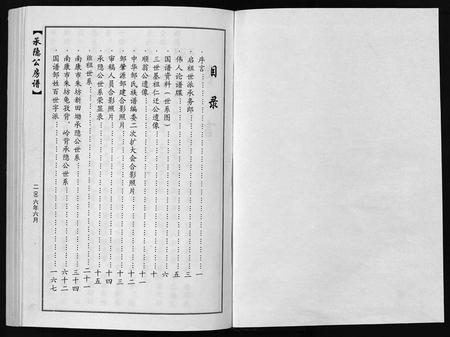 目录
序言……一
启祖世派承务郎……三
伟人论谱牒……五
国谱资料(世系图)……六
三世基祖仁迁公遗像……十
顺翁公遗像……十一
中华邹氏族谱编委二次扩大会合影照片……十二
邹肇源邹建合影照片……十三
审稿人员合影照片……十四
承隐公世系荣显录……十五
班祖世系……二十一
南康市朱坊新田坳承隐公世系……三十四
南康市朱坊龟孜背、岭背承隐公世系……六十二
国谱邹姓百世字派……一六七
【承隐公房谱】
二○○六年六月